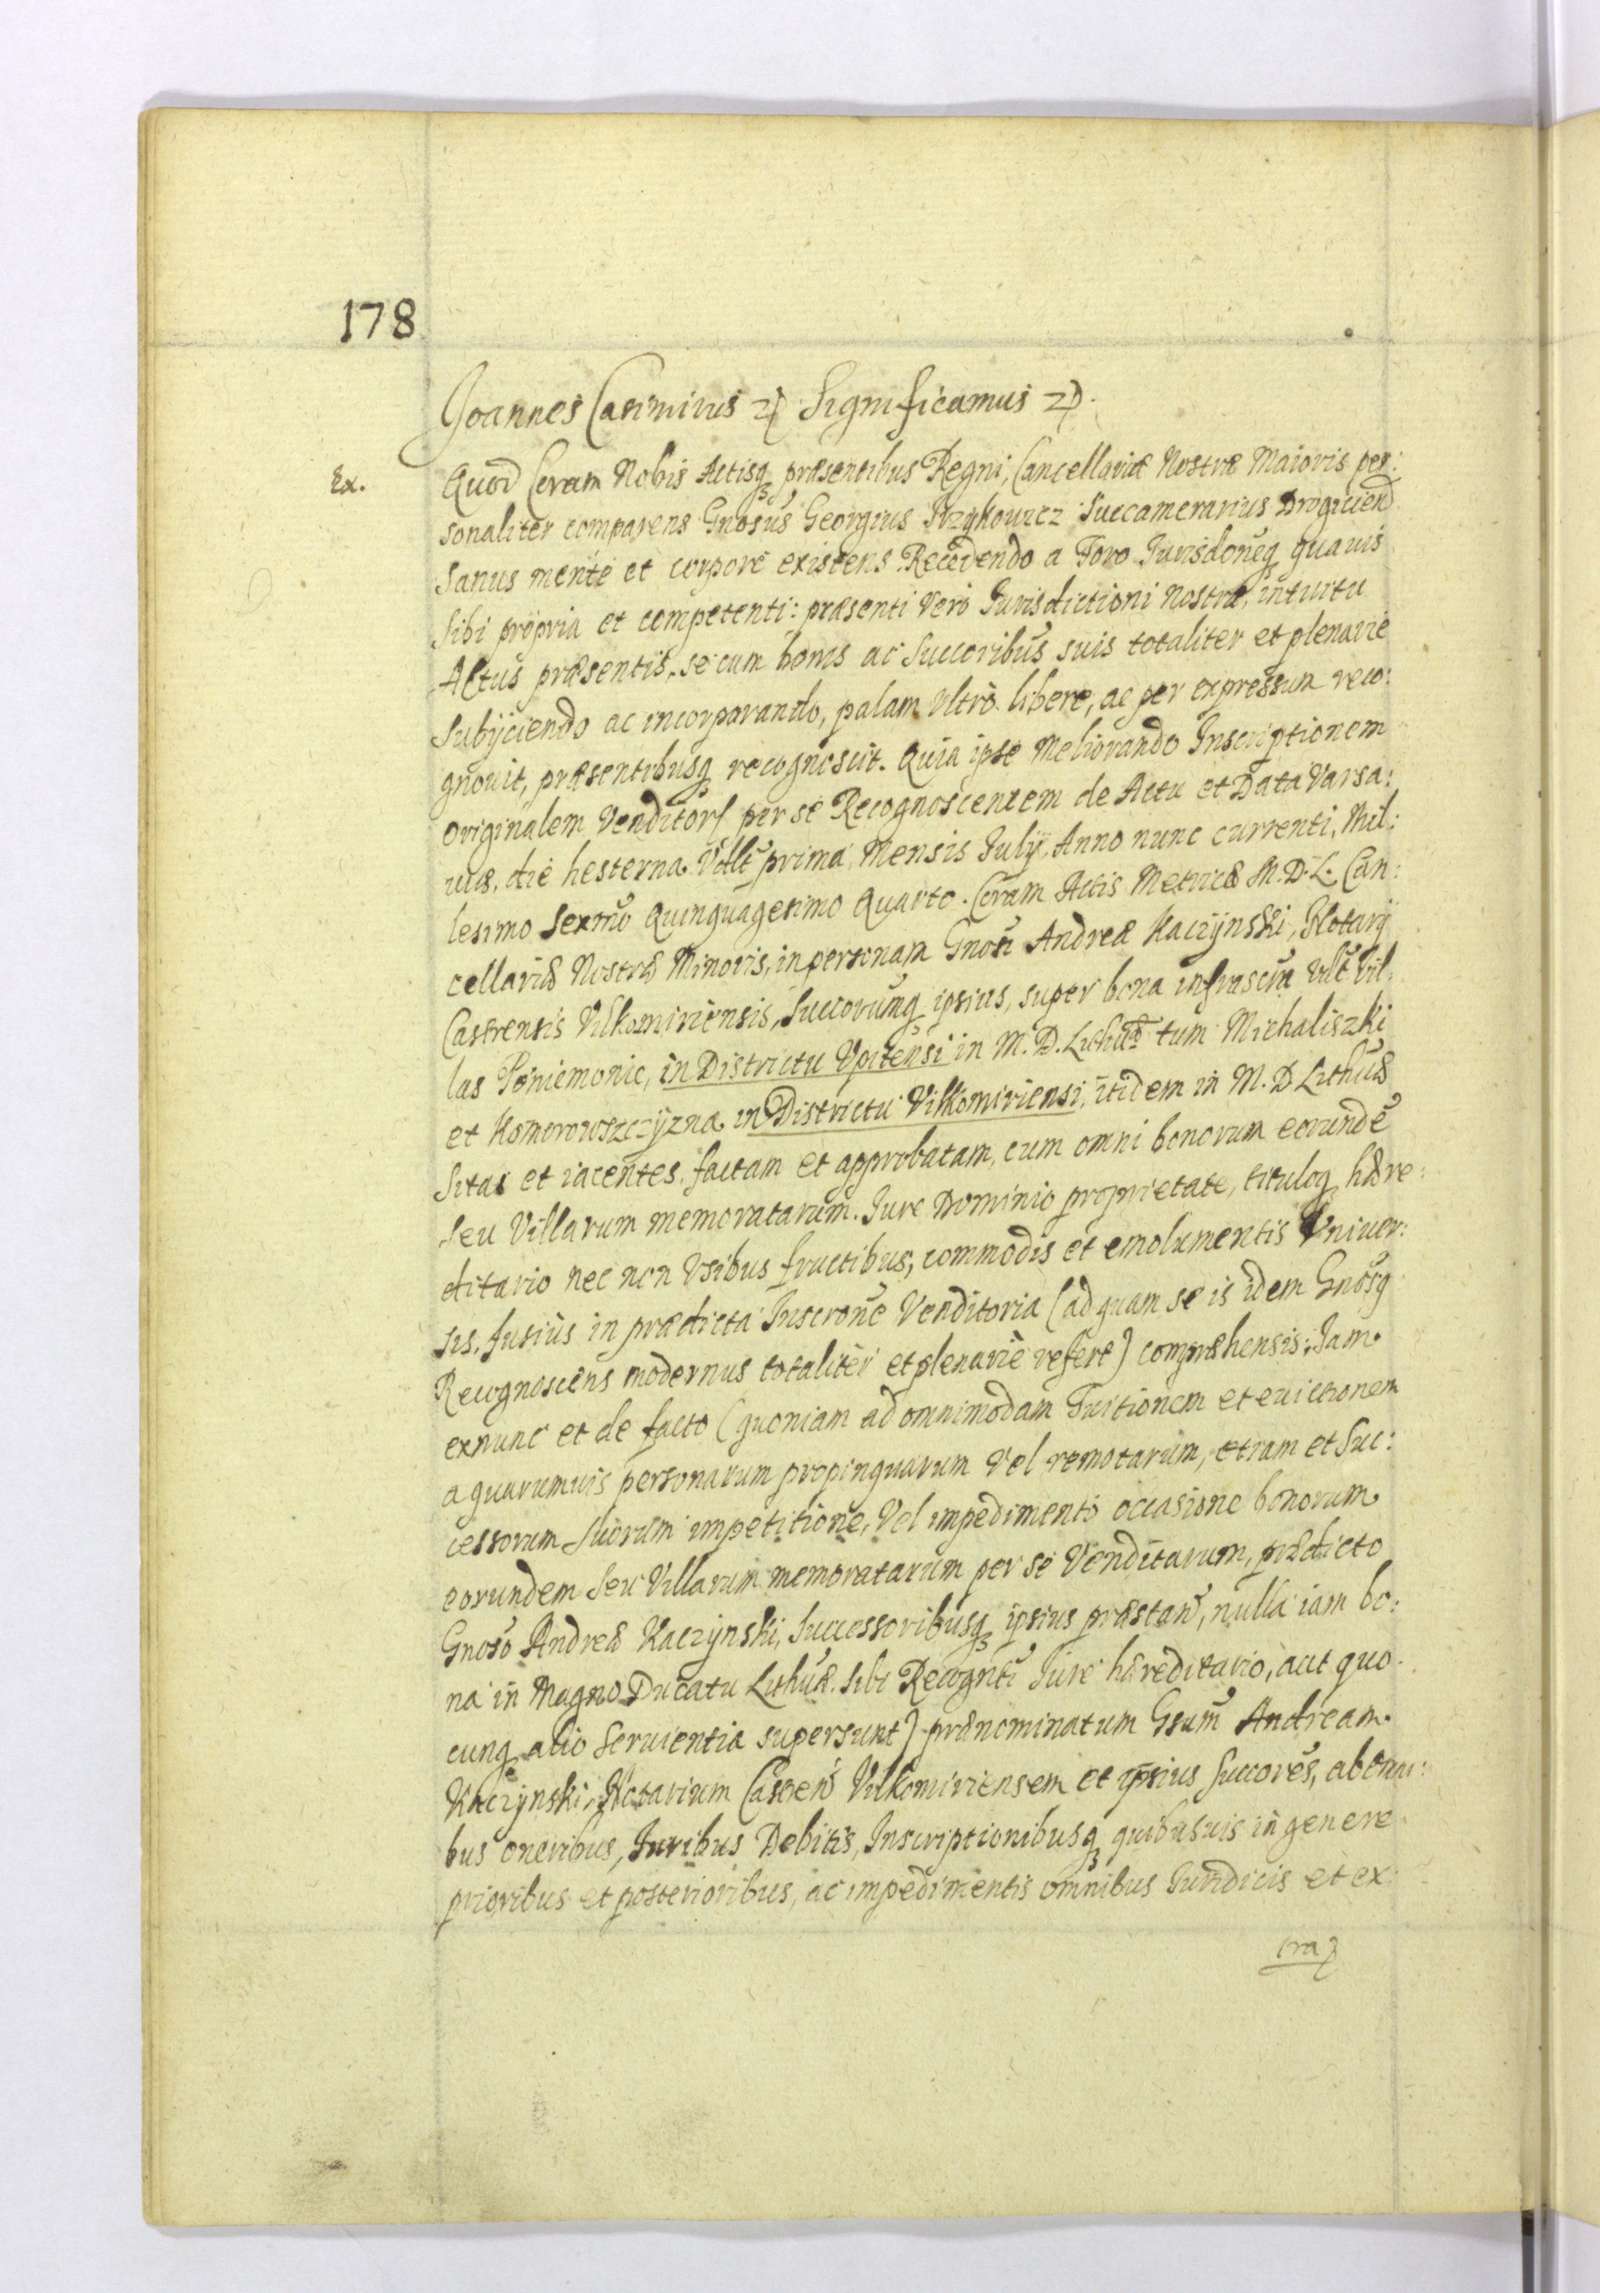 178
Joannes Casimirus etc. Significamus etc.
Ex.
Quod Coram Nobis Actisq præsentibus Regni, Cancellariæ Nostræ Maioris per:
sonaliter comparens Gnosus Georgius Succamerarius Drogiciens
Sanus mente et corpore existens Recedendo a Foro Jurisdoneq quauis
Sibi propria et competenti: præsenti Vero Jurisdictioni Nostræ, intuitu
Actus præsentis, se cum bonis ac Succoribus suis totaliter et plenarie
Subijciendo ac incorporando, palam Vltro libere, ac per expressum reco:
gnouit, præsentibusq recognoscit. Quia ipse Meliorando Inscriptionem
Originalem Venditors per se Recognoscentem de Actu et Data Varsa:
uiæ, die hesterna Vdlt prima Mensis Julij Anno nunc currenti, Mil:
lesimo Sexmo Quinquagesimo Quarto. Coram Actis Metricæ M. D. L. Can:
cellariæ Nostræ Minoris, in personam Gnosi Andreæ Kaczÿnski, Notarij
Castrensis Vilkomiriensis, Succorumq ipsius, super bona infrascra Vdlt Vil:
las Poniemonie, in Districtu Vpitensi in M. D. Lithuæ tum Michaliszki
et Komorowszczÿzna in Districtu Vilkomiriensi, itidem in M. D Lithuæ
Sitas et iacentes factam et approbatam, cum omni bonorum eorunde
Seu Villarum memoratarum. Jure Dominio proprietate, tituloq hære:
ditario nec non Vsibus fructibus, commodis et emolumentis Vniuer:
sis, fusius in prædicta Inscrone Venditoria (ad quam se is idem Gnosq
Recognoscens modernus totaliter et plenarie refert) comprehensis; Jam
exnunc et de facto (quoniam ad omnimodam Tuitionem et euictionem
a quarumuis personarum propinquarum Vel remotarum, etiam et Suc:
cessorum Suorum impetitione, Vel impedimento occasione bonorum
eorundem Seu Villarum memoratarum per se Venditarum, prædicto
Gnoso Andreæ Kaczÿnski, Successoribusq ipsius præstan, nulla iam bo:
na in Magno Ducatu Lithuæ. Sibi Recognti Jure hæreditario, aut quo
cunq alio Seruientia supersunt) prænominatum Gsum Andream
Kaczÿnski, Notarium Castren Vilkomiriensem et ipsius Succores, ab omni:
bus oneribus, Juribus Debitis, Inscriptionibusq quibusuis in genere
prioribus et posterioribus, ac impedimentis omnibus Juridicis et ex:
tra